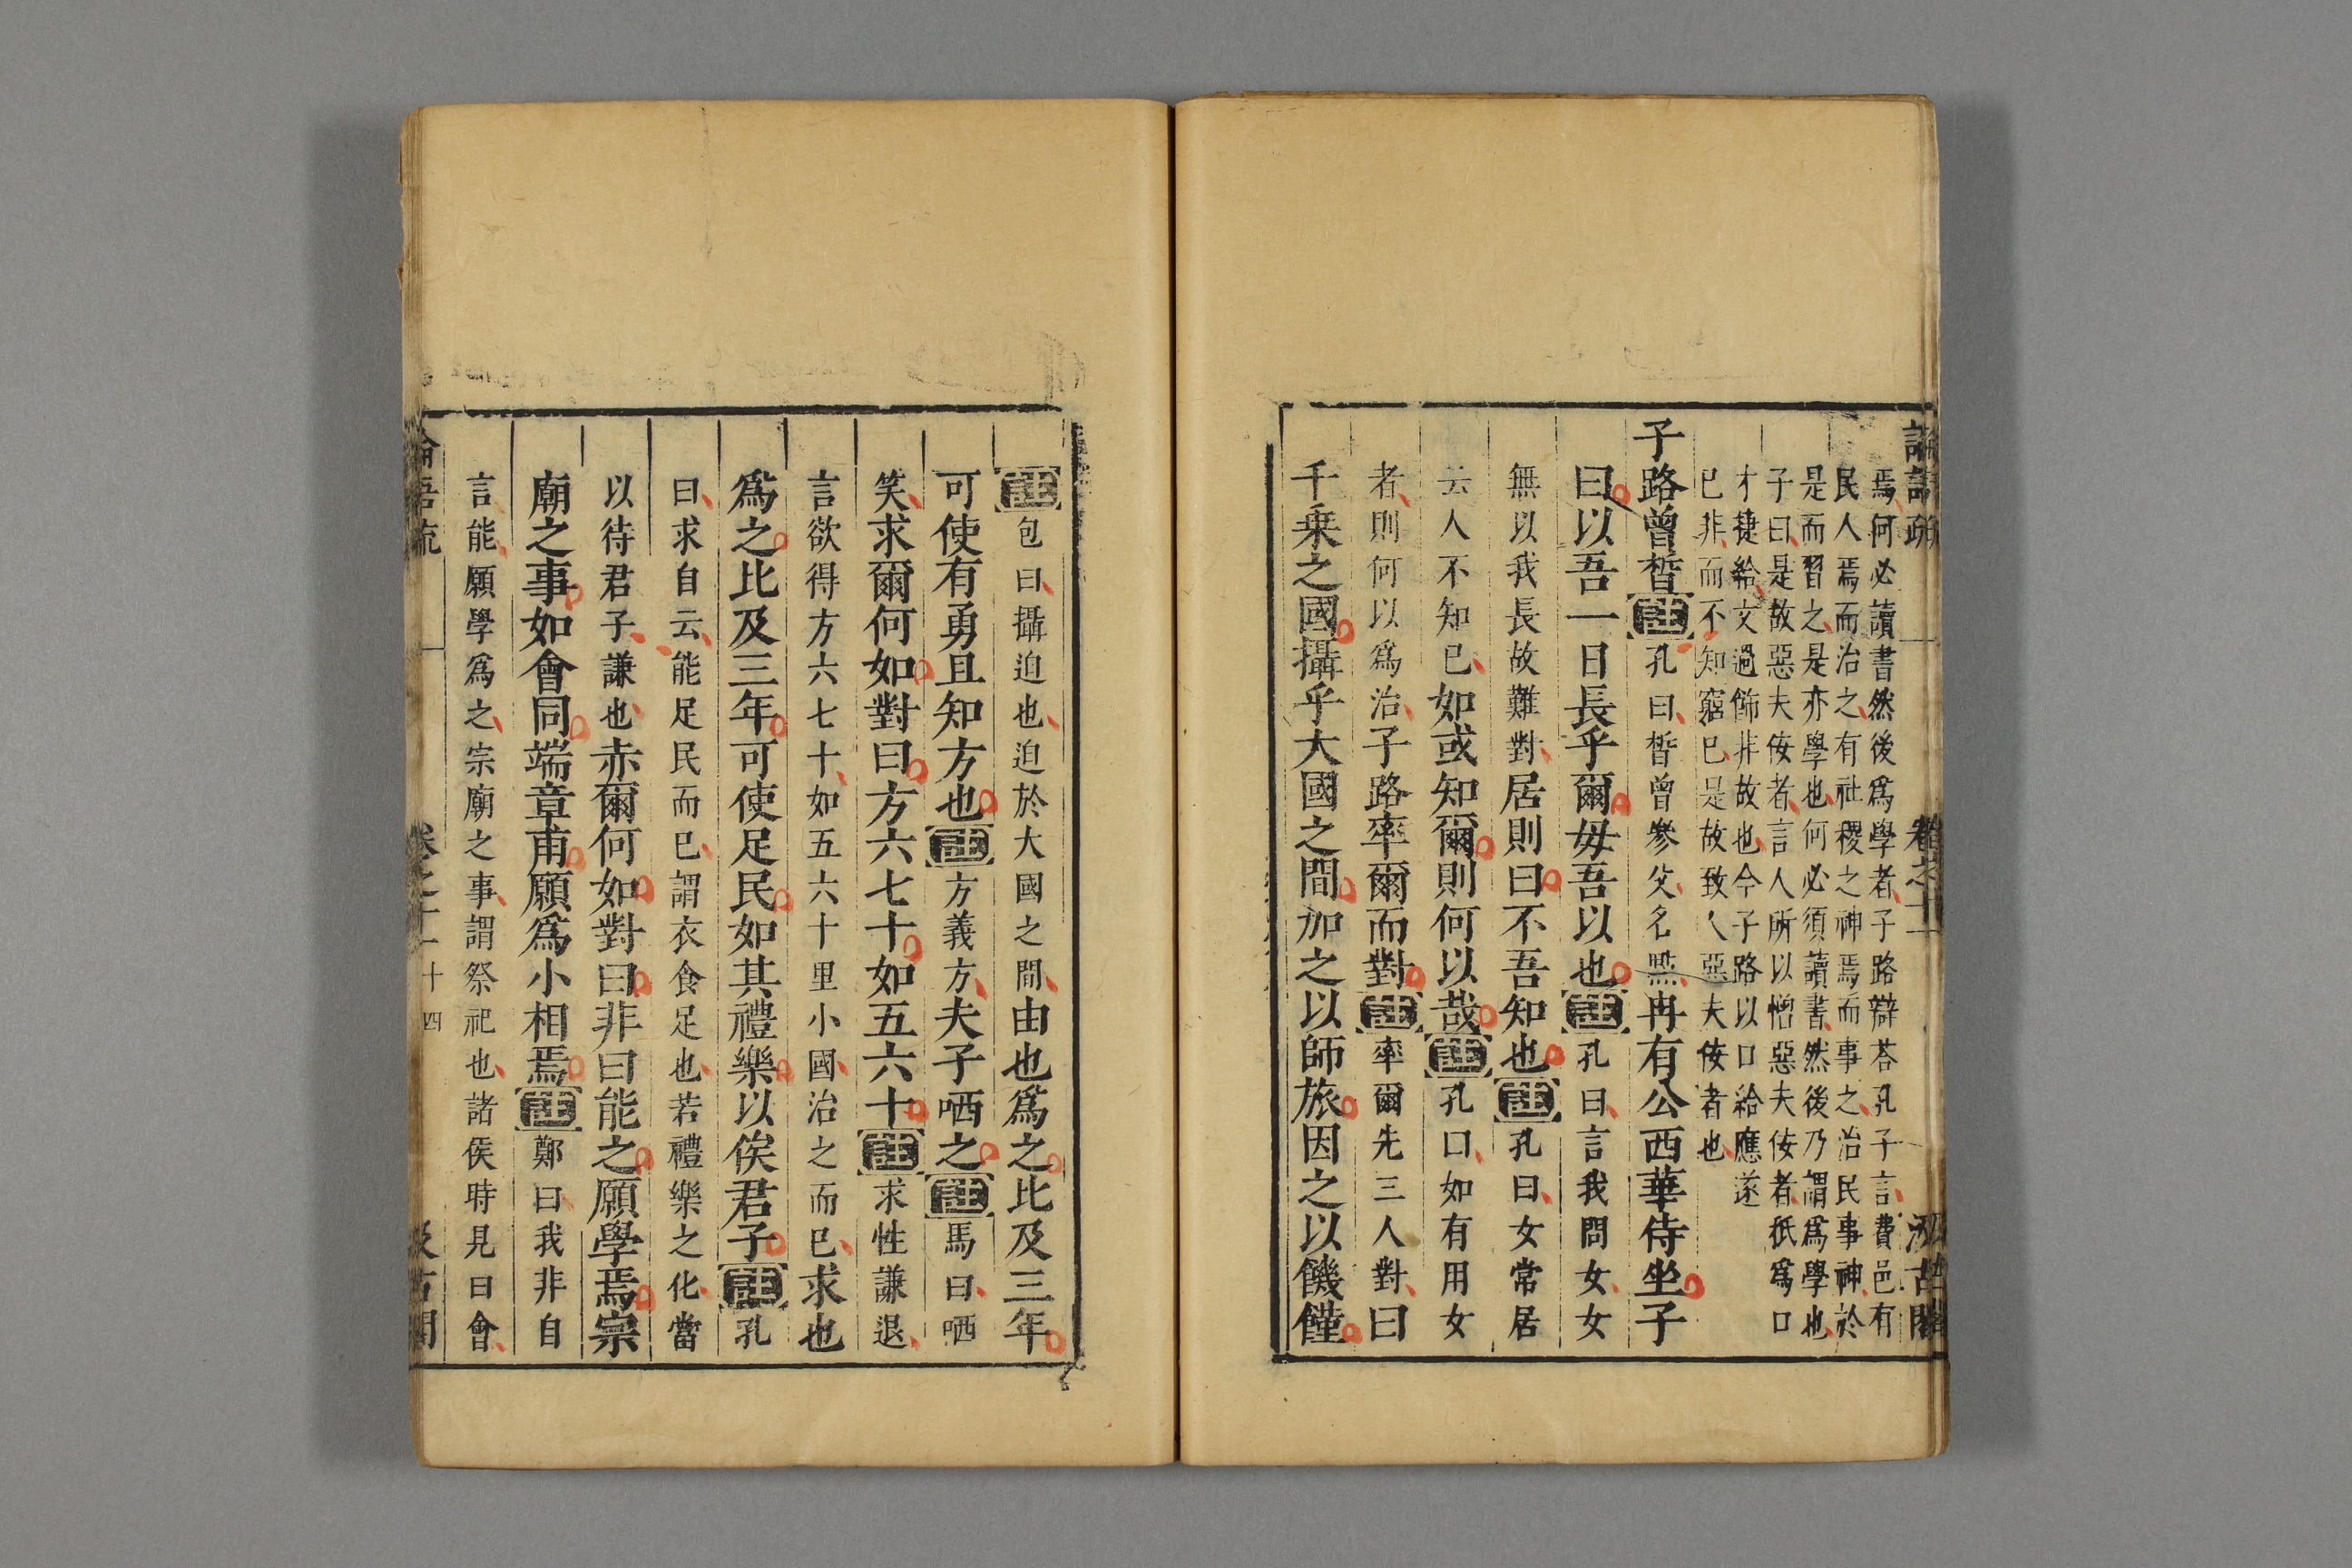 論語疏 卷之十一 汲古閣
焉何必讀書然後爲學者子路辯荅孔子言費邑有
民人焉而治之有社稷之神焉而事之治民事神於
是而習之是亦學也何必須讀書然後乃謂爲學也
子曰是故惡夫佞者言人所以憎惡夫佞者祇爲口
才捷給文過飾非故也今子路以口給應遂
已非而不知窮已是故致人惡夫佞者也
子路曾晳註孔曰晳曾參父名點冉有公西華侍坐子
曰以吾一日長乎爾毋吾以也註孔曰言我問女女
無以我長故難對居則曰不吾知也註孔曰女常居
云人不知已如或知爾則何以哉註孔曰如有用女
者則何以爲治子路率爾而對註率爾先三人對曰
千乗之國攝乎大國之間加之以師旅因之以饑饉
註包曰攝迫也迫於大國之間由也爲之比及三年
可使有勇且知方也註方義方夫子哂之註馬曰哂
笑求爾何如對曰方六七十如五六十註求性謙退
言欲得方六七十如五六十里小國治之而已求也
爲之比及三年可使足民如其禮樂以俟君子註孔
曰求自云能足民而已謂衣食足也若禮樂之化當
以待君子謙也赤爾何如對曰非曰能之願學焉宗
廟之事如會同端章甫願爲小相焉註鄭曰我非自
言能願學爲之宗廟之事謂祭祀也諸侯時見曰會
論語疏 卷之十一 十四 汲古閣